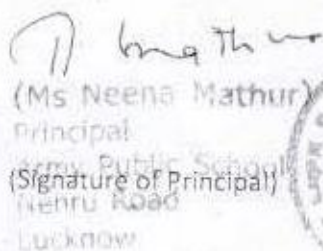 (Ms Neena Mathur)
Principal
Army Public School
(Signature of Principal)
Nehru Road
Lucknow